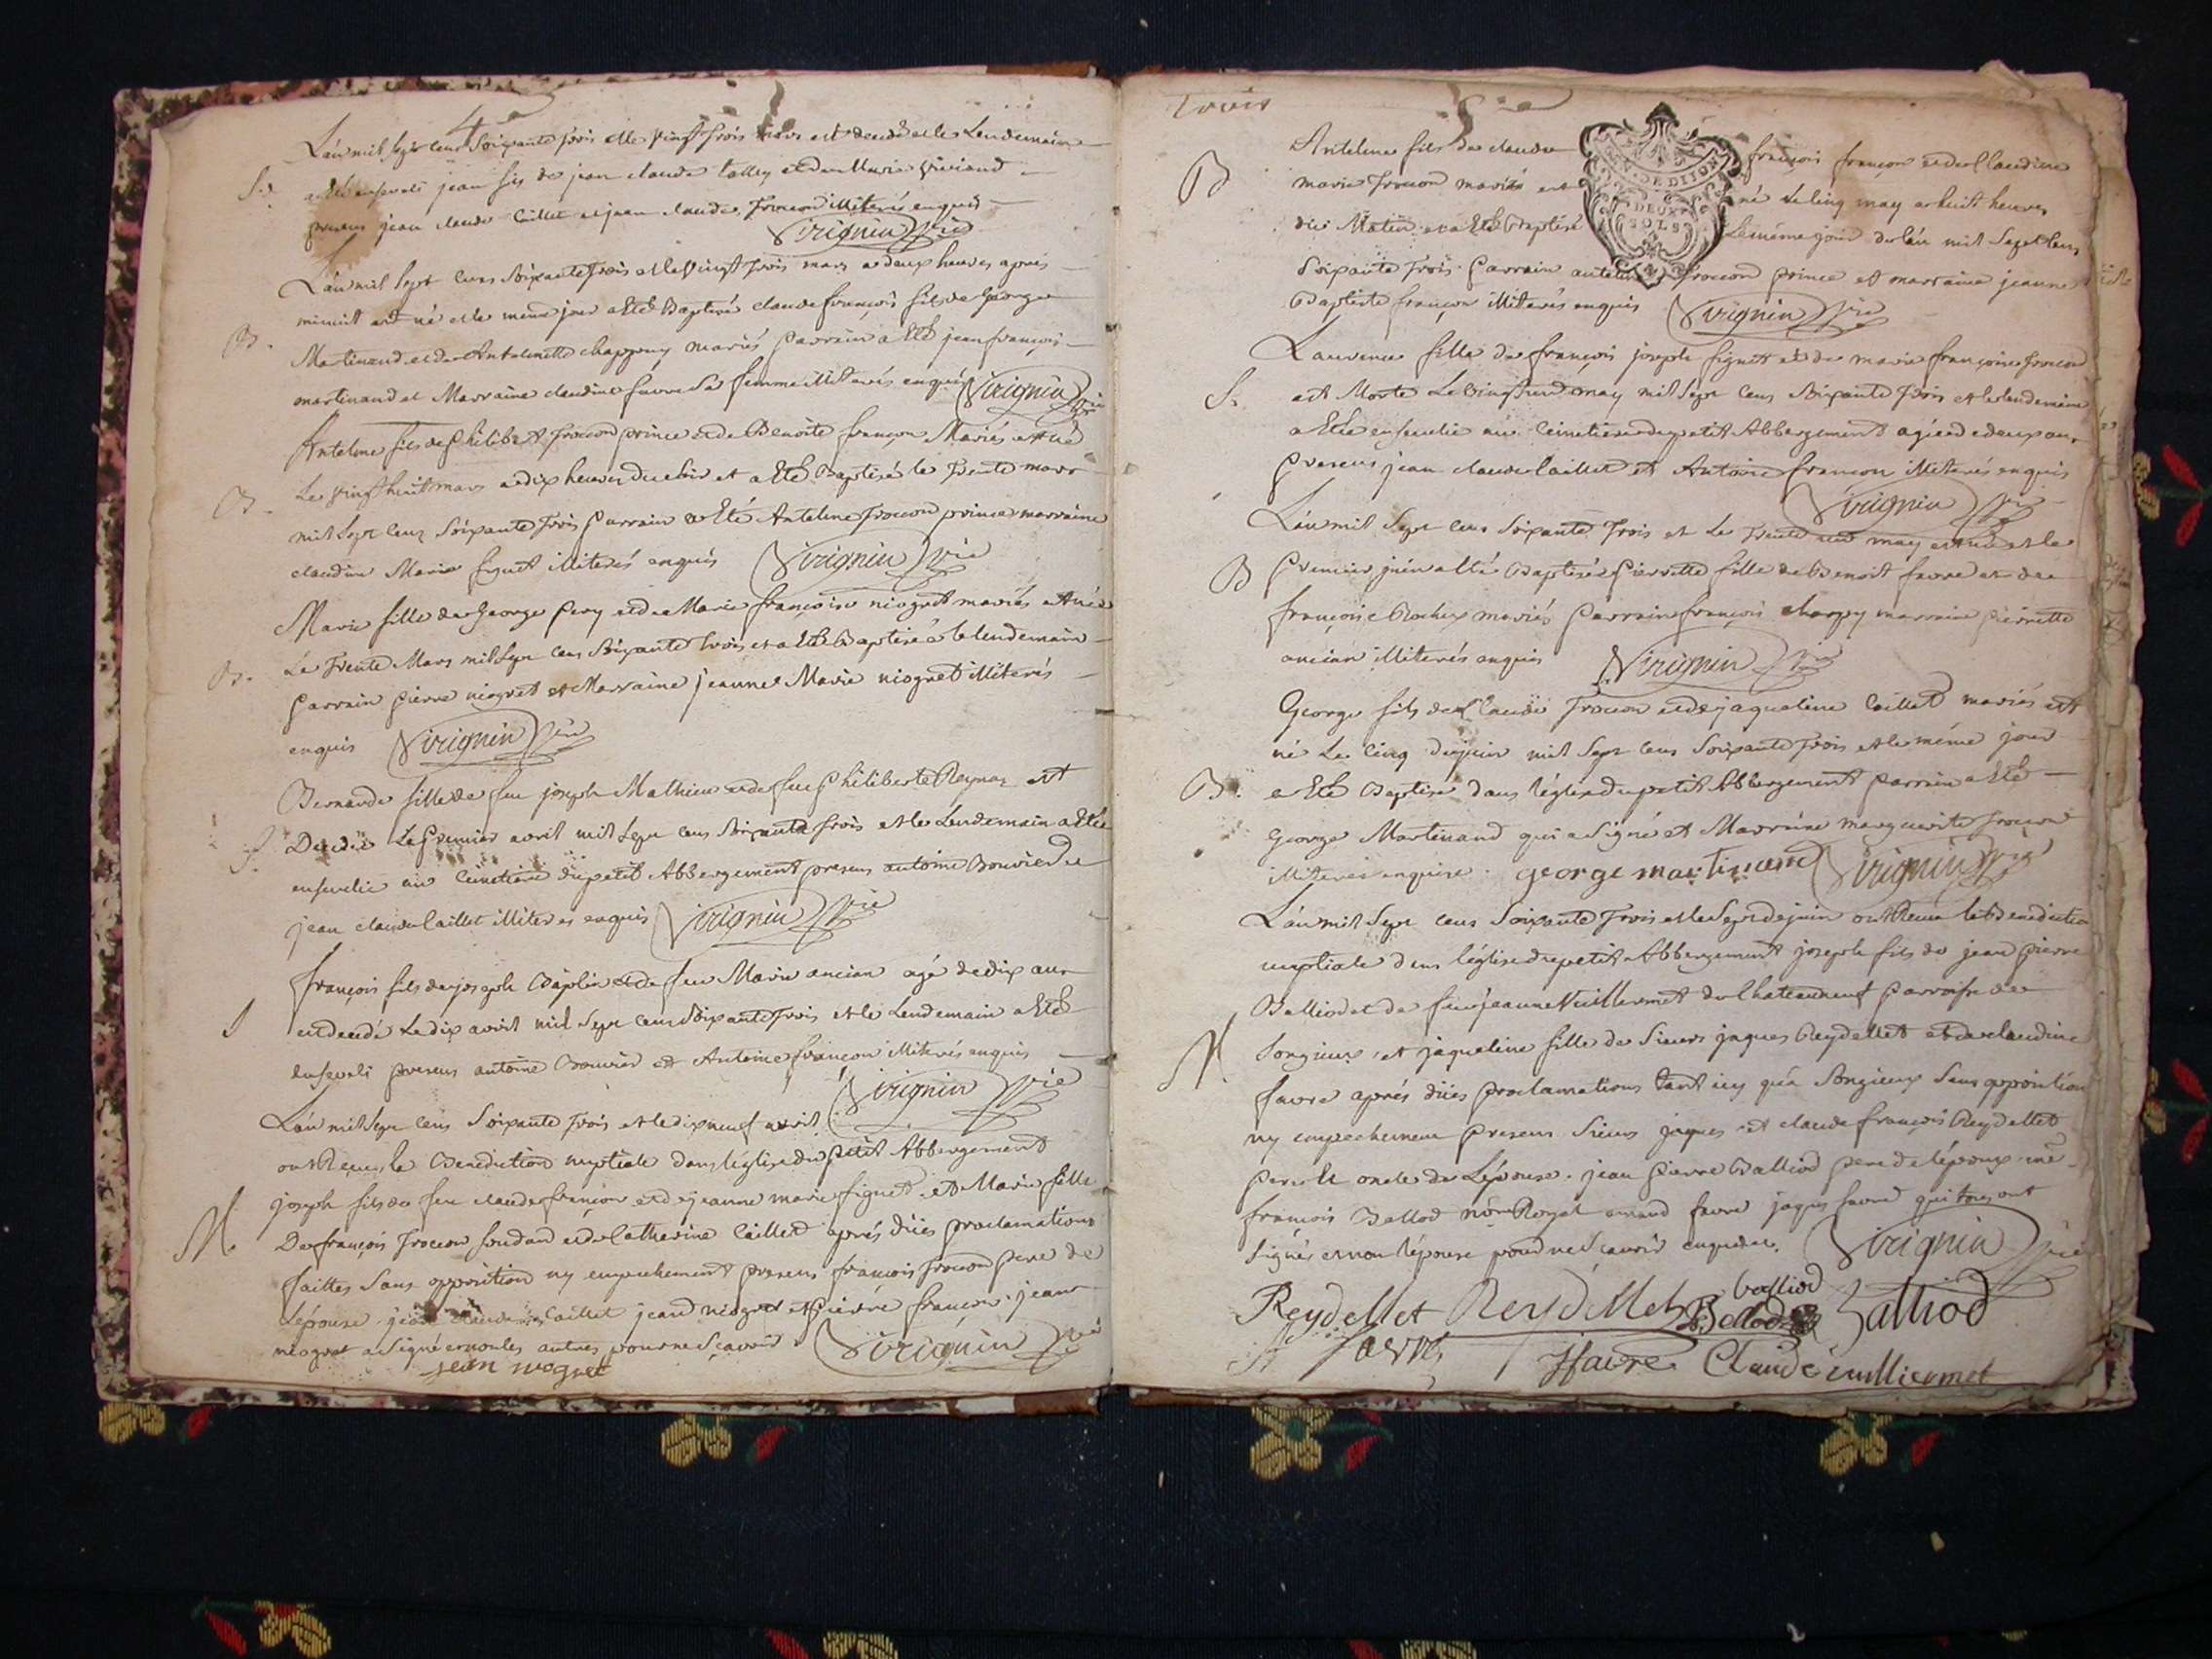 4e
L'an mil sept cens soixante trois et le vingt trois mars est decedé et le Lendemain
S. a Eté enseveli jean fils de jean claude tallex et de Marie viviand
presens jean claude Caillet et jean claude Troccon illiterés enquis
Virignin Vic
L'an mil sept cens soixante trois et le vingt trois mars a deux heures apres
minuit est né et le meme jour a Eté Baptisé claude françois fils de George
B. Martinand et de Antelmette chappuy mariés parrain a Eté jean françois
martinand et Marraine claudine favre sa femme illiterés enquis Virignin Vic
Antelme fils de Philibert Troccon prince et de Benoite françon Mariés est né
B. Le vingt huit mars a dix heures du soir et a Eté Baptisé le trente mars
mil sept cens soixante trois parrain a Eté Antelme Troccon prince marraine
claudine Marie figuet illiterés enquis Virignin Vic
Marie fille de George pery et de Marie françoise niogret mariés est née
B. Le trente Mars mil sept cens soixante trois et a Eté Baptisée le lendemain
parrain pierre niogret et Marraine jeanne Marie niogret illiterés
enquis Virignin Vic
Bernarde fille de feu joseph Mathieu et de feue philiberte Reynaz est
S. Decedée Le premier avril mil sept cens soixante trois et le Lendemain a Eté
ensevelie au cimetiere du petit Abbergement presens antoine Bouvier et
jean claude Caillet illiterés enquis Virignin Vic
françois fils de joseph et de feu Marie ancian agé de dix ans
S est decedé Le dix avril mil sept cens soixante trois et le Lendemain a Eté
enseveli presens antoine Bouvier et Antoine françon illiterés enquis
Virignin Vic
L'an mil sept cens soixante trois et le dix neuf avril
ont Reçus la Benediction nuptiale dans l'église du petit Abbergement
joseph fils de feu claude françon et de jeanne marie figuet et Marie fille
M. De françois Troccon soudan et de Catherine Caillet aprés dües proclamations
faittes sans opposition ny empechement presens françois Troccon pere de
L'épouse jean claude Caillet jean niogret et pierre françon jean
niogret a signé et non les autres pour ne sçavoir Virignin Vic
jean niogret
trois
5e
Antelme fils de claude françois françon et de Claudine
B marie Troccon mariés est né le cinq may a huit heures
du Matin et a Eté Baptisé Le même jour de l'an mil sept cens
GEN. DE DIJON
DEUX SOLS
soixante trois parrain antelme Troccon prince et marraine jeanne
Baptiste françon illiterés enquis Virignin Vic
Laurence fille de françois joseph figuet et de marie françoise Troccon
S. est Morte Le vingt un may mil sept cens soixante trois et le lendemain
a Eté ensevelie au cimetiere du petit Abbergement agée de deux ans
presens jean claude Caillet et Antoine françon illiterés enquis
Virignin Vic
L'an mil sept cens soixante trois et Le trente un may est née et le
B premier juin a Eté Baptisée pierrette fille de Benoit favre et de
françoise Rochex mariés parrain françois chappuy marraine pierrette
ancian illiterés enquis Virignin Vic
George fils de Claude Troccon et de jaqueline Caillet mariés est
né Le cinq de juin mil sept cens soixante trois et le même jour
B. a Eté Baptisé dans l'église du petit Abbergement parrain a Eté
George Martinand qui a signé et Marraine marguerite Troccon
illiterée enquise. george martinand Virignin Vic
L'an mil sept cens soixante trois et le sept de juin ont Reçus la Benediction
nuptiale dans l'église du petit Abbergement joseph fils de jean pierre
Balliod et de feue jeanne Vuillermet de Chateauneuf parroisse de
M. Songieux, et jaqueline fille de Sieurs jaques Reydellet et de claudine
favre aprés dües proclamations tant icy qu'a Songieux sans opposition
ny empechement presens Sieurs jaques et claude françois Reydellet
pere et oncle de L'épouse. jean pierre Balliod pere de l'époux me
françois Ballod nore Royal amand favre jaques favre qui tous ont
signés et non l'épouse pour ne sçavoir enquise. Virignin Vic
Reydellet Reydellet balliod Ballod Balliod
favre Jfavre Claude vuilliermet